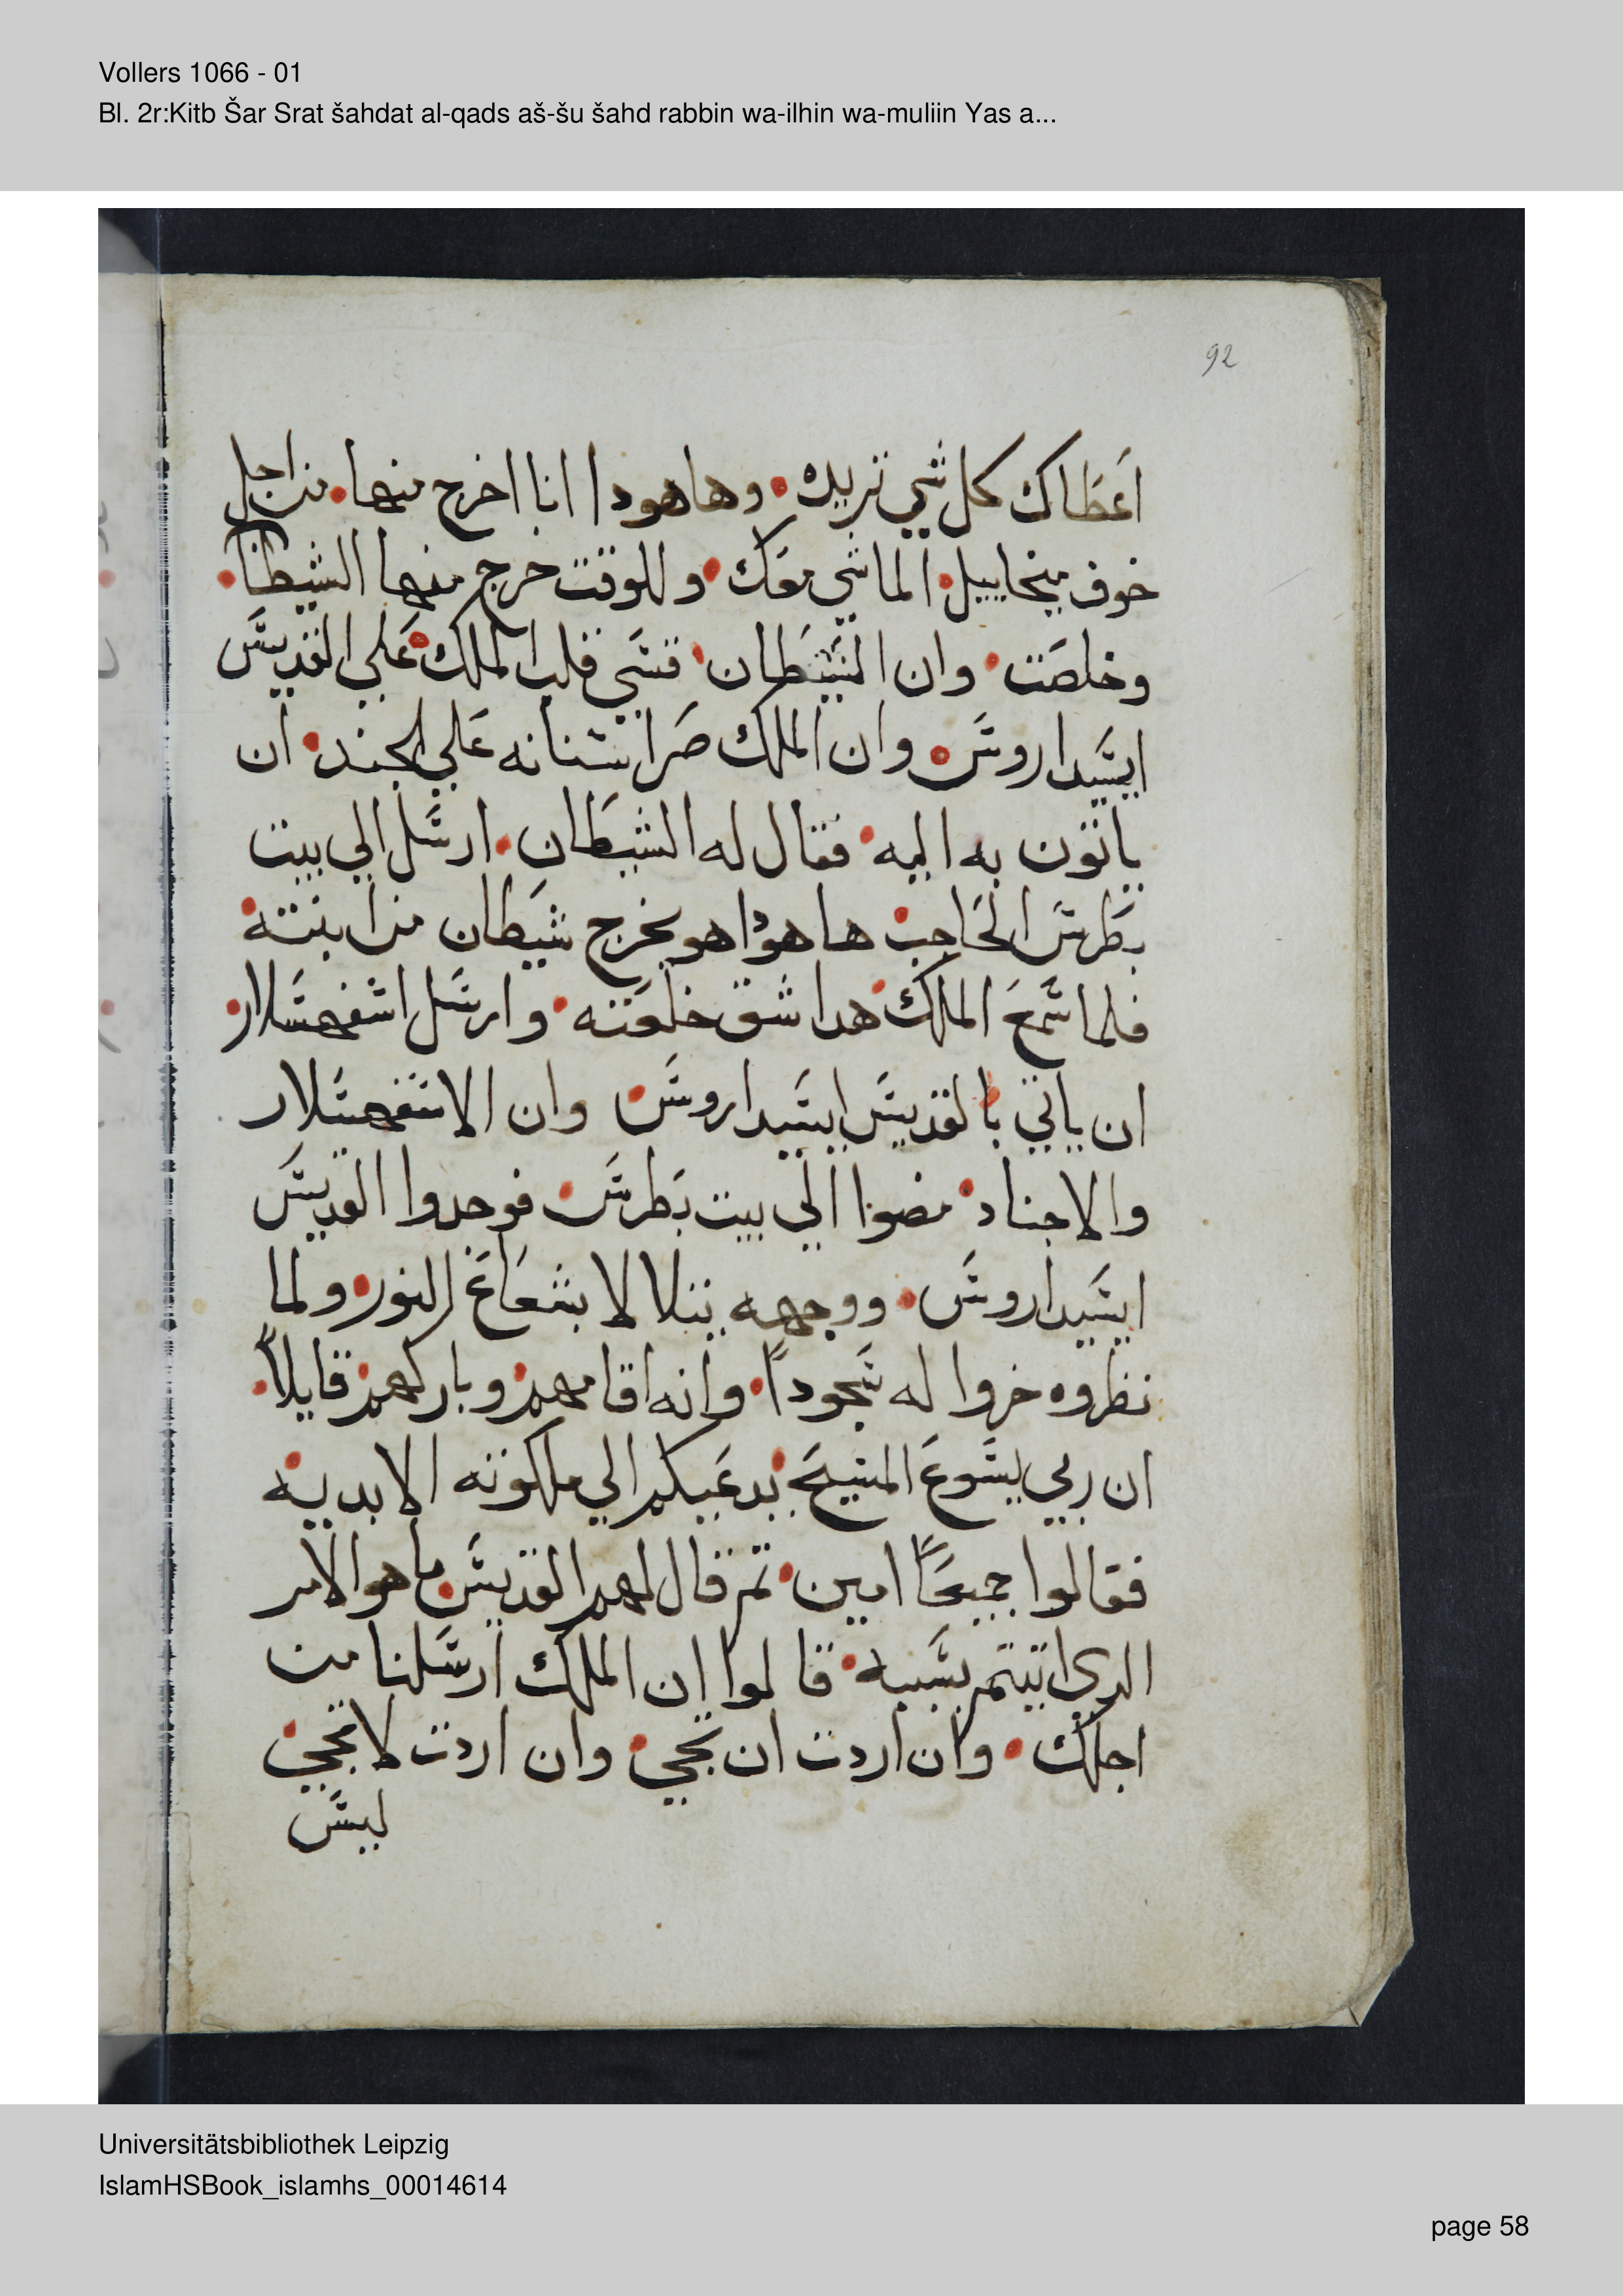 Vollers 1066 - 01
Bl. 2r:Kitb Šar Srat šahdat al-qads aš-šu šahd rabbin wa-ilhin wa-muliin Yas a...
92
اعطاك كل شي تريده. وها هودا انا اخرج منها. من اجل
خوف ميخاييل. الماشي معك. وللوقت خرج منها الشيطان.
وخلصت. وان الشيطان. قسي قلب الملك علي القديس
ايسيداروس. وان الملك صر اسنانه علي الجند. ان
ياتون به اليه. فقال له الشيطان. ارسل الي بيت
بطرس الحاجب. ها هودا هو يخرج شيطان من ابنته.
فلما سمع الملك هدا شق خلعته. وارسل اسفهسلار.
ان ياتي بالقديس ايسيداروس. وان الاسفهسلار
والاجناد. مضوا الي بيت بطرس. فوجدوا القديس
ايسيداروس. ووجهه يتلالا بشعاع النور. ولما
نظروه خروا له سجوداً. وانه اقامهم. وباركهم. قايلاً.
ان ربي يسوع المسيح. يدعيكم الي ملكوته الابديه.
فقالوا جميعاً امين. تم قال لهم القديس. ما هو الامر
الدي اتيتم بسببه. قالوا ان الملك ارسلنا من
اجلك. وان اردت ان تجي. وان اردت لا تجي.
ليس
Universitätsbibliothek Leipzig
IslamHSBook_islamhs_00014614
page 58